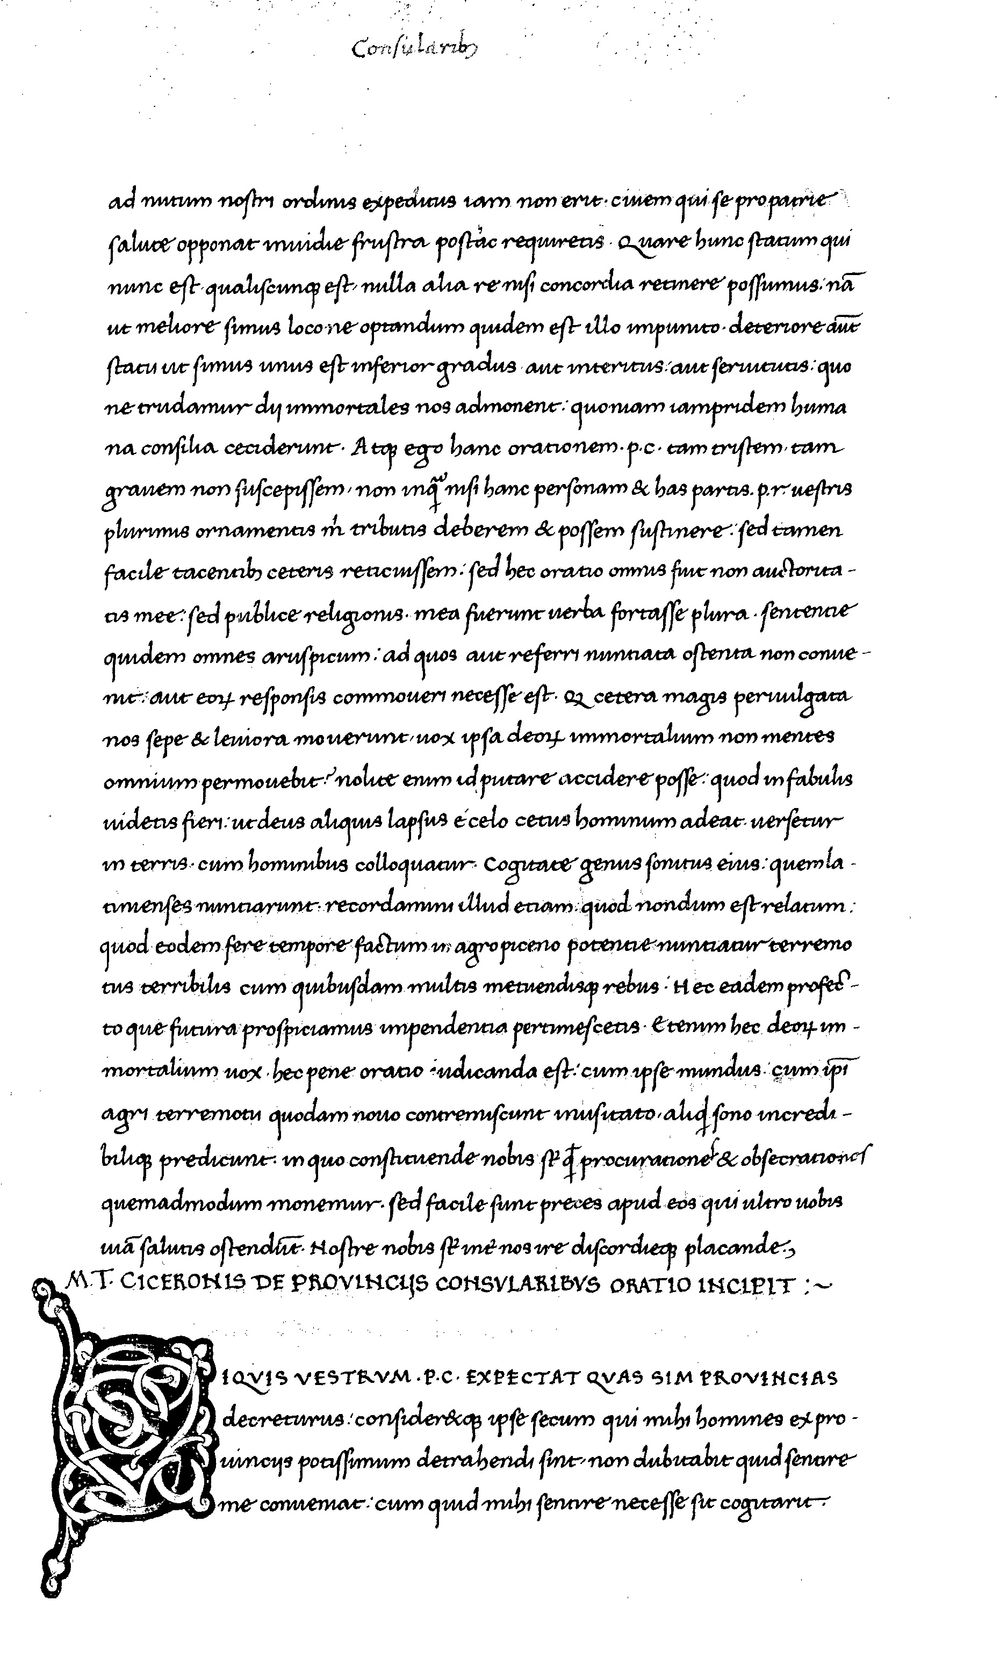 Consularibꝫ
ad nutum nostri ordinis expeditus iam non erit· ciuem qui se pro patrie
salute opponat inuidie frustra postac requiretis· Quare hunc statum qui
nunc est· qualiscunqꝫ est· nulla alia re nisi concordia retinere possumus: nā
ut meliore simus loco· ne optandum quidem est illo impunito· deteriore aūt
statu ut simus unus est inferior gradus· aut interitus: aut seruitutis: quo
ne trudamur dij immortales nos admonent: quoniam iampridem huma
na consilia ceciderunt· Atqꝫ ego hanc orationem· p.c· tam tristem· tam
grauem non suscepissem· non inqͣ nisi hanc personam & has partis· p.r· uestris
plurimis ornamentis m̄ tributis deberem & possem sustinere: sed tamen
facile tacentibꝫ ceteris reticuissem: sed hec oratio omnis fuit non auctorita-
tis mee: sed publice religionis· mea fuerunt uerba fortasse plura· sententie
quidem omnes aruspicum: ad quos aut referri nuntiata ostenta non conue-
nit: aut eoꝝ responsis commoueri necesse est· Qꝫ cetera magis peruulgata
nos sepe & leuiora mouerunt· uox ipsa deoꝝ immortalium non mentes
omnium permouebit? nolite enim id putare accidere posse: quod in fabulis
uidetis fieri: ut deus aliquis lapsus é celo cetus hominum adeat· uersetur
in terris· cum hominibus colloquatur· Cogitate genus sonitus eius: quem la-
tinienses nuntiarunt· recordamini illud etiam: quod nondum est relatum:
quod eodem fere tempore factum in agro piceno potentie nuntiatur terremo
tus terribilis cum quibusdam multis metuendisqꝫ rebus: Hec eadem profec-
to que futura prospiciamus impendentia pertimescetis· Etenim hec deoꝝ im-
mortalium uox· hec pene oratio iudicanda est: cum ipse mundus: cum ip̄i
agri terremotu quodam nouo contremiscunt inusitato· aliqͩ sono incredi-
biliqꝫ predicunt· in quo constituende nobis st̄ qͩ procurationes & obsecrationes
quemadmodum monemur· sed facile sunt preces apud eos qui ultro uobis
uiā salutis ostendūt· Nostre nobis st̄ int̄ nos ire discordieqꝫ placande;
M.T. CICERONIS DE PROVINCIJS CONSVLARIBVS ORATIO INCIPIT :~
SIQVIS VESTRVM ·P·C· EXPECTAT QVAS SIM PROVINCIAS
decreturus: consider&qꝫ ipse secum qui mihi homines ex pro-
uincijs potissimum detrahendi sint· non dubitabit quid sentire
me conueniat: cum quid mihi sentire necesse sit cogitarit·